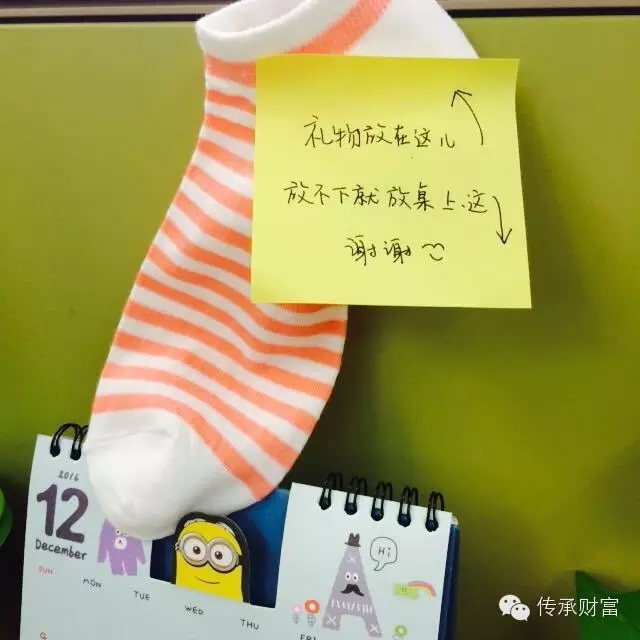 礼物放在这儿
放不下就放桌上这
谢谢
2016
12
December
SUN
MON
TUE
WED
THU
FRI
Hi
4
传承财富